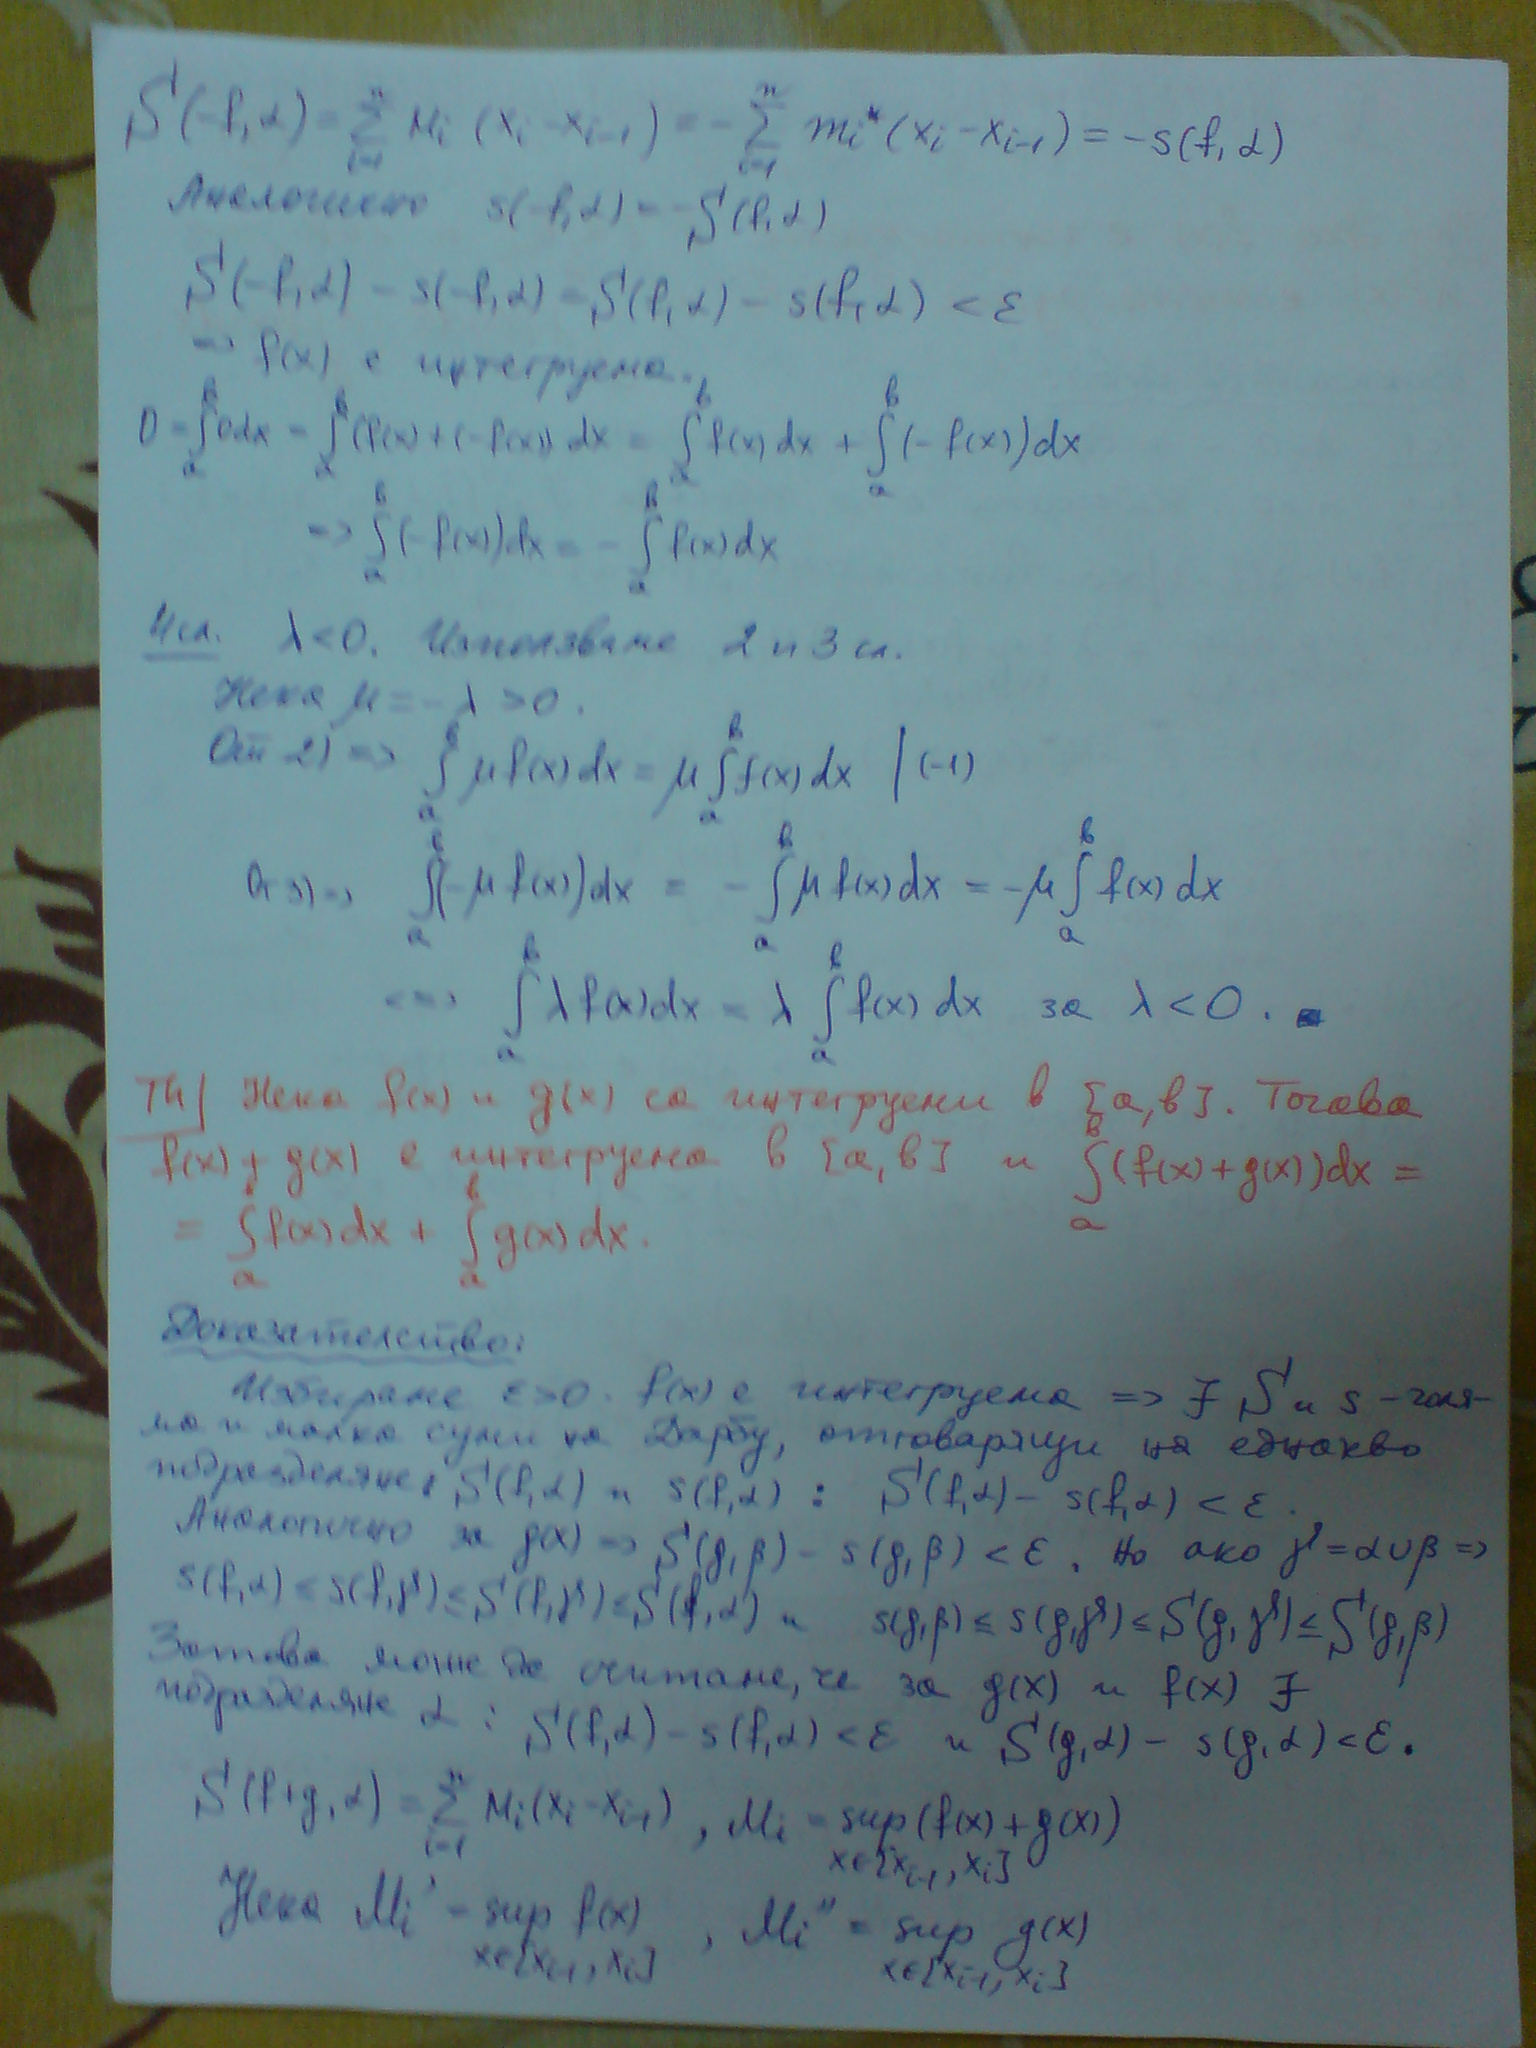 S(-f,α) = ∑_{i=1}^{n} Mi (xi - xi-1) = - ∑_{i=1}^{n} mi* (xi - xi-1) = -s(f,α)
Аналогично s(-f,α) = -S(f,α)
S(-f,α) - s(-f,α) = S(f,α) - s(f,α) < ε
=> f(x) е интегруема.
0 = ∫_a^b 0dx = ∫_a^b (f(x)+(-f(x))) dx = ∫_a^b f(x) dx + ∫_a^b (-f(x))dx
=> ∫_a^b (-f(x))dx = - ∫_a^b f(x)dx
4 сл. λ<0. Използваме 2 и 3 сл.
Нека μ = -λ > 0.
От 2) => ∫_a^b μf(x)dx = μ∫_a^b f(x)dx |(-1)
От 3) => ∫_a^b (-μf(x))dx = -∫_a^b μf(x)dx = -μ∫_a^b f(x)dx
<=> ∫_a^b λf(x)dx = λ ∫_a^b f(x)dx за λ<0.
Th| Нека f(x) и g(x) са интегруеми в [a,b]. Тогава
f(x)+g(x) е интегруема в [a,b] и ∫_a^b (f(x)+g(x))dx =
= ∫_a^b f(x)dx + ∫_a^b g(x)dx.
Доказателство:
Избираме ε>0. f(x) е интегруема => ∃ S и s - голя-
ма и малка суми на Дарбу, отговарящи на еднакво
подразделяне: S(f,α) и s(f,α) : S(f,α) - s(f,α) < ε.
Аналогично за g(x) => S(g,β) - s(g,β) < ε. Но ако γ = α∪β =>
s(f,α) ≤ s(f,γ) ≤ S(f,γ) ≤ S(f,α) и s(g,β) ≤ s(g,γ) ≤ S(g,γ) ≤ S(g,β)
Затова може да считаме, че за g(x) и f(x) ∃
подразделяне α : S(f,α) - s(f,α) < ε и S(g,α) - s(g,α) < ε.
S(f+g,α) = ∑_{i=1}^{n} Mi(xi - xi-1), Mi = sup_{x∈[xi-1,xi]} (f(x)+g(x))
Нека Mi' = sup_{x∈[xi-1,xi]} f(x), Mi'' = sup_{x∈[xi-1,xi]} g(x)